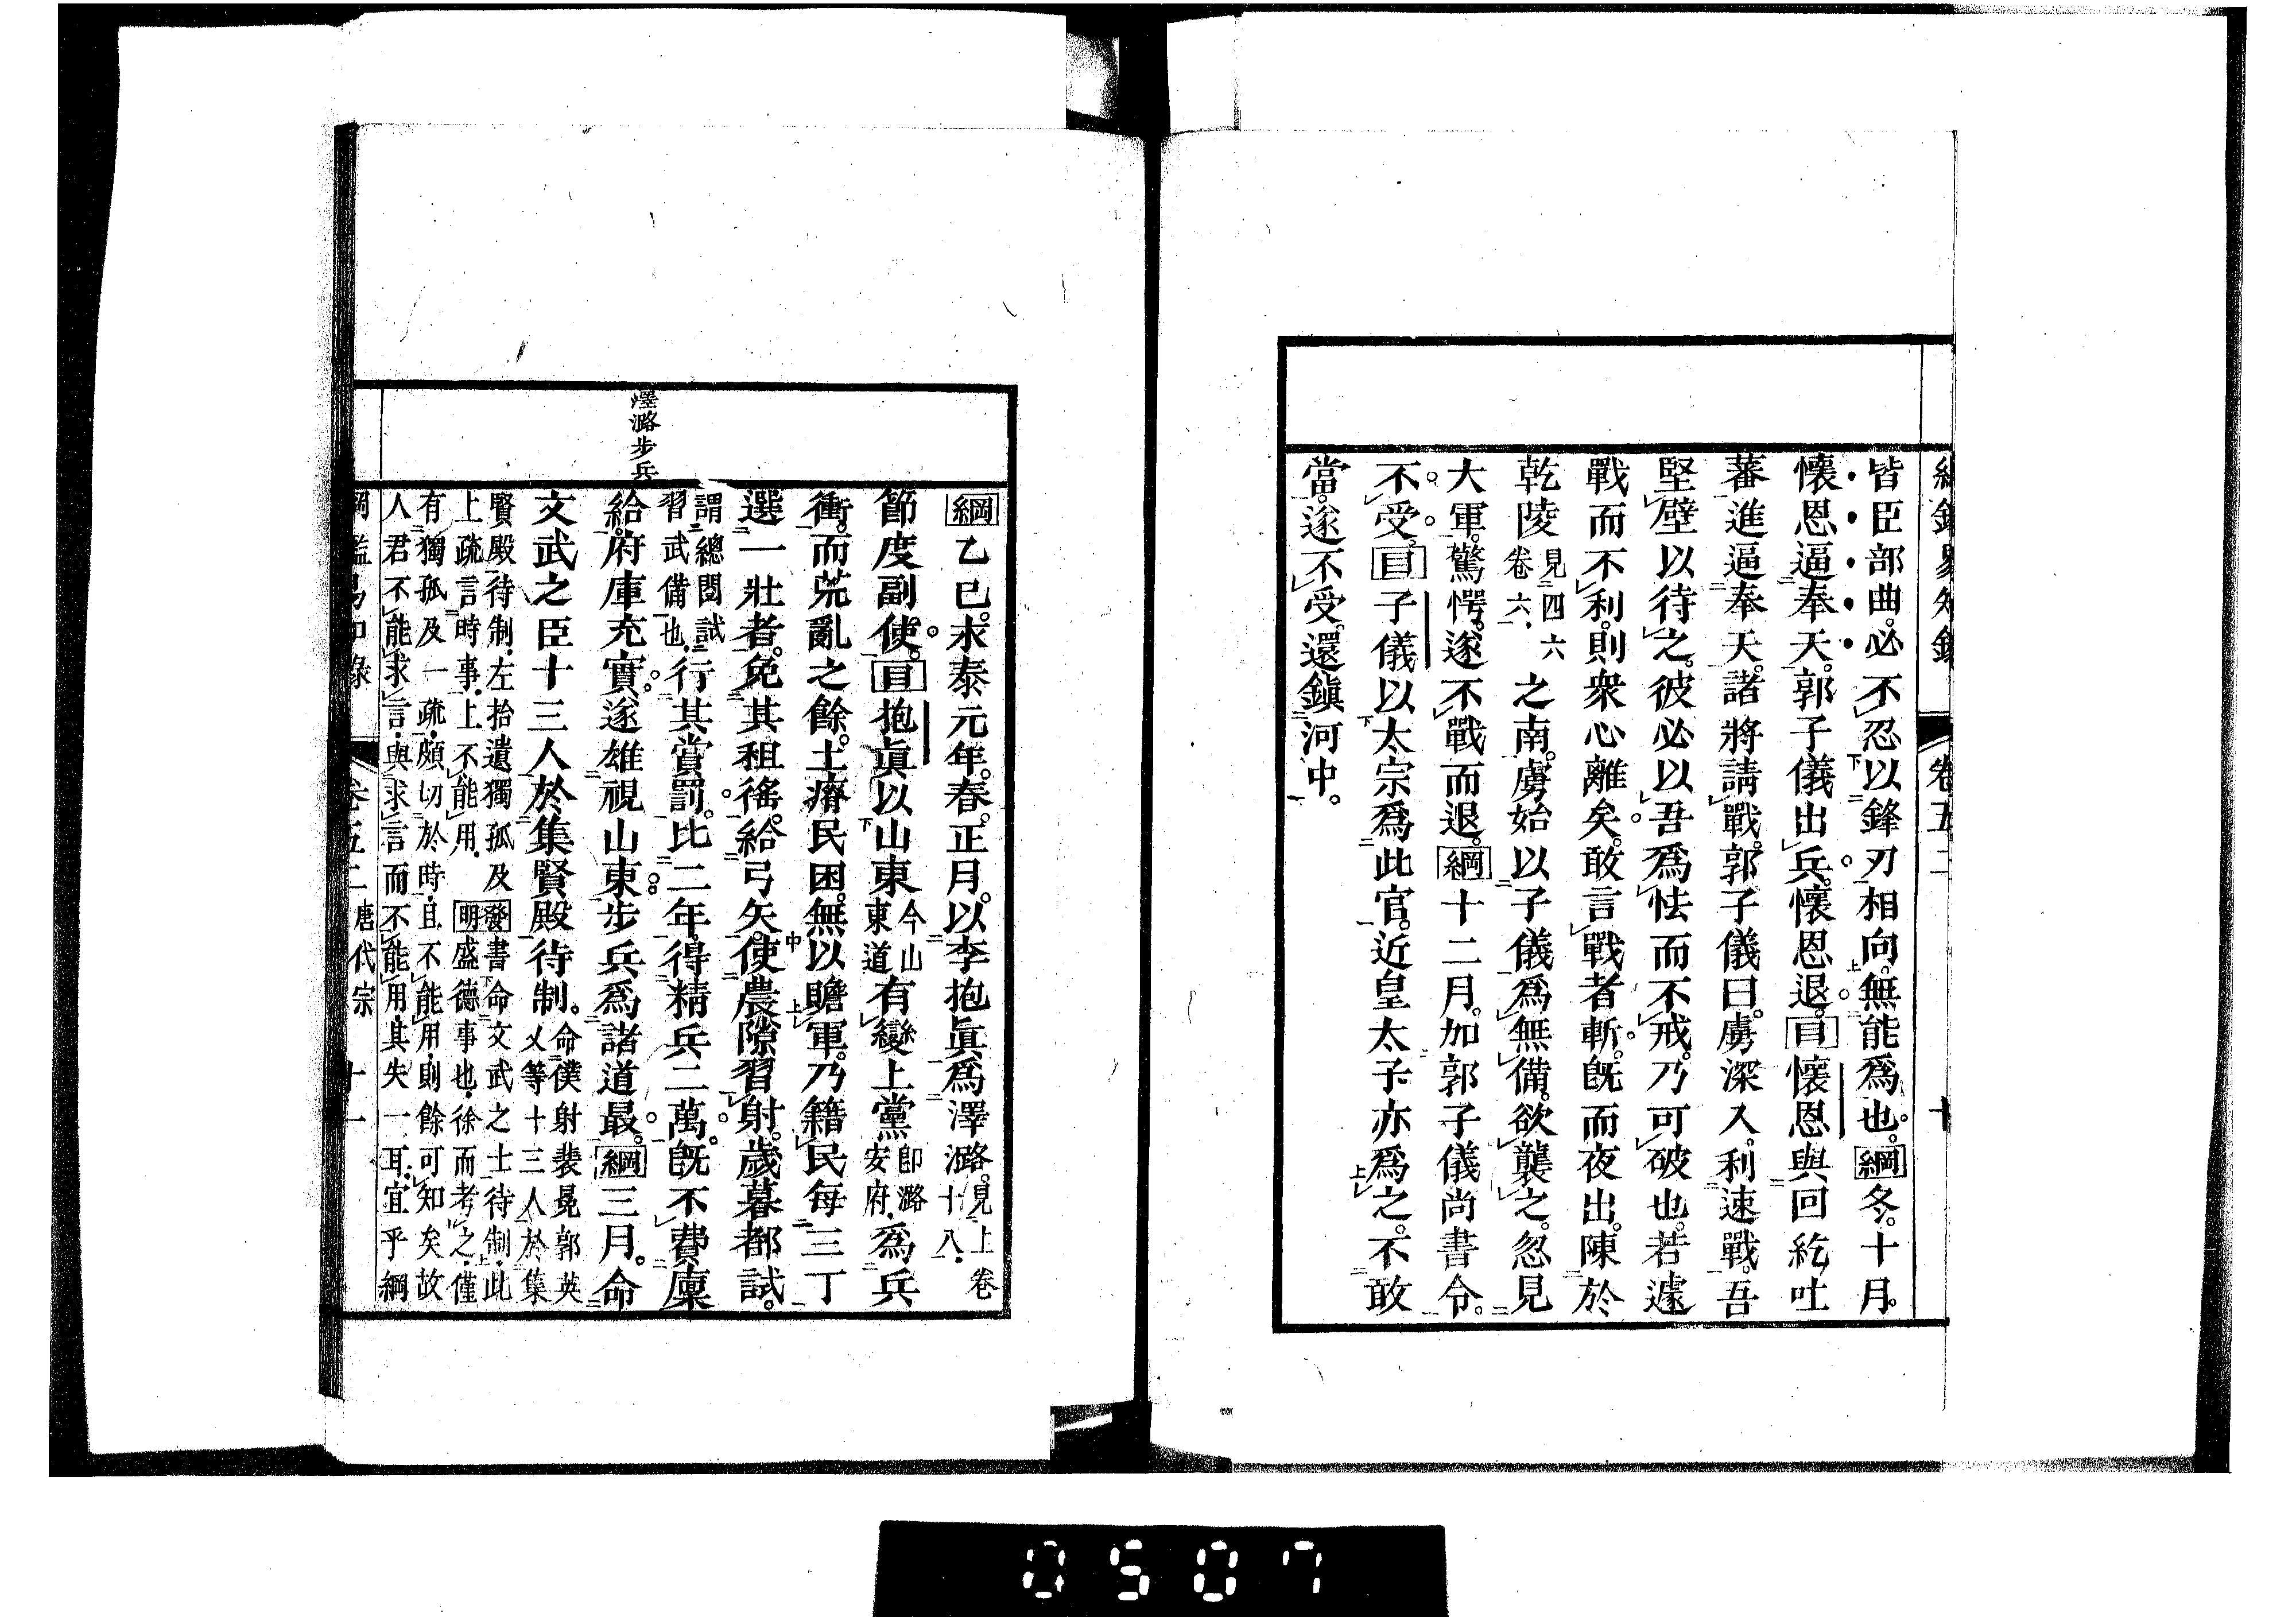 綱鑑易知錄 卷五二 十
皆臣部曲。必不忍以鋒刃相向。無能爲也。綱冬。十月。
懷恩逼奉天。郭子儀出兵。懷恩退。目懷恩與回紇吐
蕃進逼奉天。諸將請戰。郭子儀曰。虜深入。利速戰。吾
堅壁以待之。彼必以吾爲怯而不戒。乃可破也。若遽
戰而不利。則衆心離矣。敢言戰者斬。旣而夜出。陳於
乾陵見四六卷六。之南。虜始以子儀爲無備。欲襲之。忽見
大軍。驚愕。遂不戰而退。綱十二月。加郭子儀尚書令。
不受。目子儀以太宗爲此官。近皇太子亦爲之。不敢
當。遂不受。還鎭河中。
澤潞步兵
綱乙巳。永泰元年。春。正月。以李抱眞爲澤潞。見上卷十八。
節度副使。目抱眞以山東今山東道有變。上黨卽潞安府。爲兵
衝。而荒亂之餘。土瘠民困。無以贍軍。乃籍民每三丁
選一壯者。免其租徭。給弓矢。使農隙習射。歲暮都試。
謂總閱試習武備也。行其賞罰。比二年。得精兵二萬。旣不費廩
給。府庫充實。遂雄視山東。步兵爲諸道最。綱三月。命
文武之臣十三人於集賢殿待制。命僕射裴冕郭英乂等十三人於集
賢殿待制。左拾遺獨孤及上疏言時事。上不能用。發明書命文武之士待制。此盛德事也。徐而考之。僅
有獨孤及一疏。頗切於時。且不能用。則餘可知矣。故人君不能求言。與求言而不能用。其失一耳。宜乎綱
綱鑑易知錄 卷五二 唐代宗 十一
0507